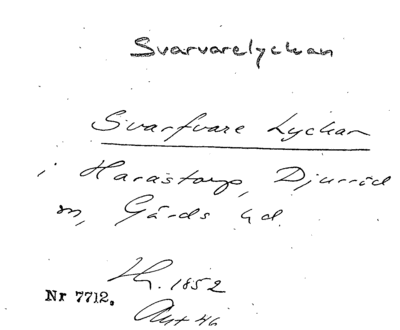 Svarvarelyckan
Svarfvare Lyckan
i Harastorp, Djurröd
sn, Gärds hd.
1852
Nr 7712.